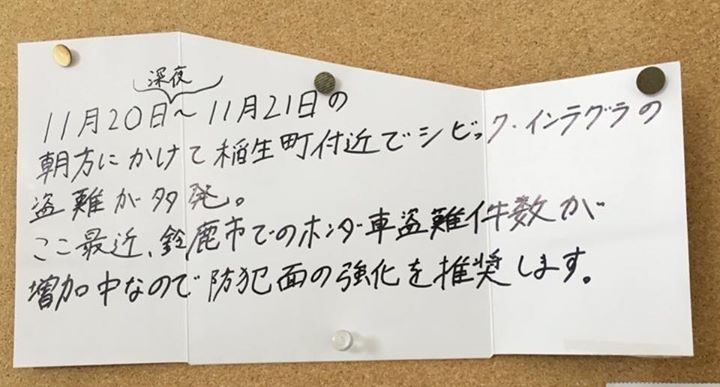 深夜
11月20日~11月21日の
朝方にかけて稲生町付近でシビック・インテグラの
盗難が多発。
ここ最近、鈴鹿市でのホンダ車盗難件数が
増加中なので防犯面の強化を推奨します。